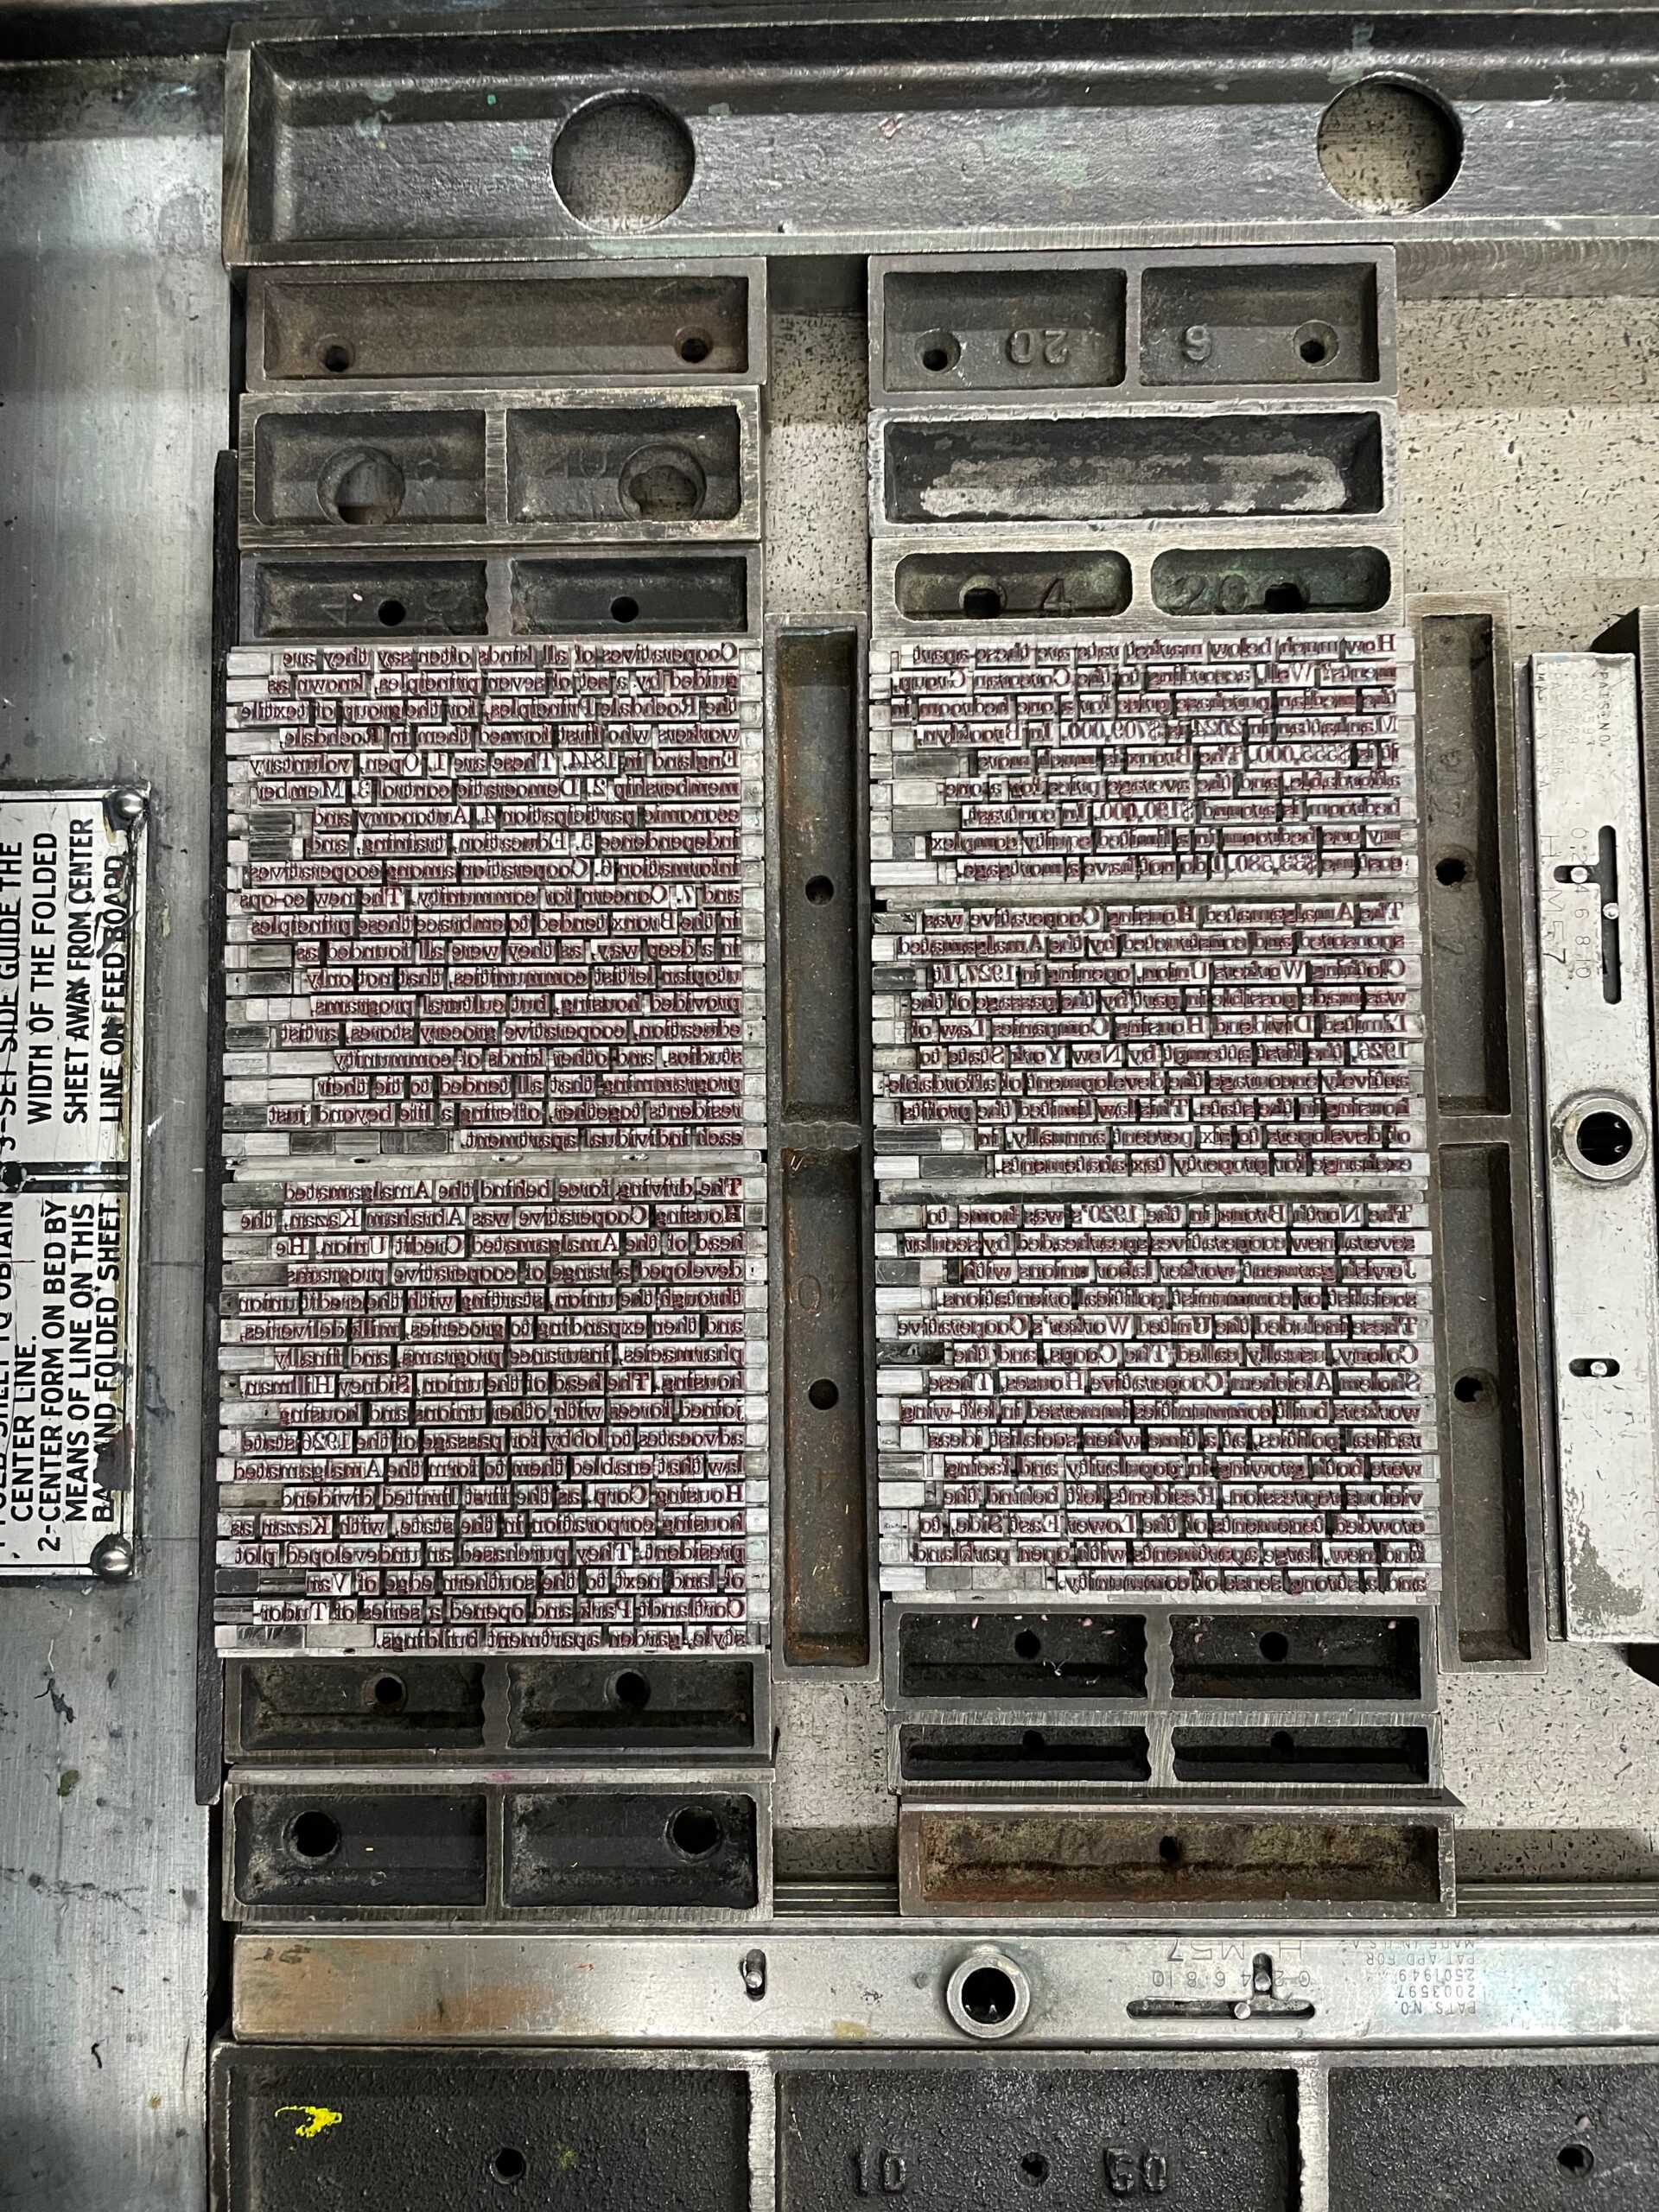 How much below market rate are these apart-
ments? Well, according to the Corcoran Group,
the median purchase price for a one bedroom in
Manhattan in 2024 is $709,000. In Brooklyn,
it is $555,000. The Bronx is much more
affordable, and the average price for a one-
bedroom is around $190,000. In contrast,
my one bedroom in a limited equity complex
cost me $33,580. I do not have a mortgage.
The Amalgamated Housing Cooperative was
sponsored and constructed by the Amalgamated
Clothing Workers Union, opening in 1927. It
was made possible in part by the passage of the
Limited Dividend Housing Companies Law of
1926, the first attempt by New York State to
actively encourage the development of affordable
housing in the state. This law limited the profits
of developers to six percent annually, in
exchange for property tax abatements.
The North Bronx in the 1920's was home to
several new cooperatives spearheaded by secular
Jewish garment worker labor unions with
socialist or communist political orientations.
These included the United Worker's Cooperative
Colony, usually called The Coops, and the
Sholem Aleichem Cooperative Houses. These
workers built communities immersed in left-wing
radical politics, at a time when socialist ideas
were both growing in popularity and facing
vicious repression. Residents left behind the
crowded tenements of the Lower East Side, to
find new, large apartments with open park land
and a strong sense of community.
Cooperatives of all kinds often say they are
guided by a set of seven principles, known as
the Rochdale Principles, for the group of textile
workers who first formed them in Rochdale,
England in 1844. These are 1. Open, voluntary
membership 2. Democratic control 3. Member
economic participation 4. Autonomy and
independence 5. Education, training, and
information 6. Cooperation among cooperatives,
and 7. Concern for community. The new co-ops
in the Bronx tended to embrace these principles
in a deep way, as they were all founded as
utopian leftist communities, that not only
provided housing, but cultural programs,
education, cooperative grocery stores, artist
studios, and other kinds of community
programming that all tended to tie their
residents together, offering a life beyond just
each individual apartment.
The driving force behind the Amalgamated
Housing Cooperative was Abraham Kazan, the
head of the Amalgamated Credit Union. He
developed a range of cooperative programs
through the union, starting with the credit union
and then expanding to groceries, milk deliveries,
pharmacies, insurance programs, and finally
housing. The head of the union, Sidney Hillman,
joined forces with other unions and housing
advocates to lobby for passage of the 1926 state
law that enabled them to form the Amalgamated
Housing Corp. as the first limited dividend
housing corporation in the state, with Kazan as
president. They purchased an undeveloped plot
of land next to the southern edge of Van
Cortlandt Park and opened a series of Tudor-
style, garden apartment buildings.
FOLD SHEET TO OBTAIN
CENTER LINE.
2-CENTER FORM ON BED BY
MEANS OF LINE ON THIS
BAR AND FOLDED SHEET.
3-SET SIDE GUIDE THE
WIDTH OF THE FOLDED
SHEET AWAY FROM CENTER
LINE ON FEED BOARD
20 5
4 20
40
H M57
0 2 4 6 8 10
PATS. NO.
2003597
2501949
PAT. APP. FOR
MADE IN U.S.A.
H M57
10 60